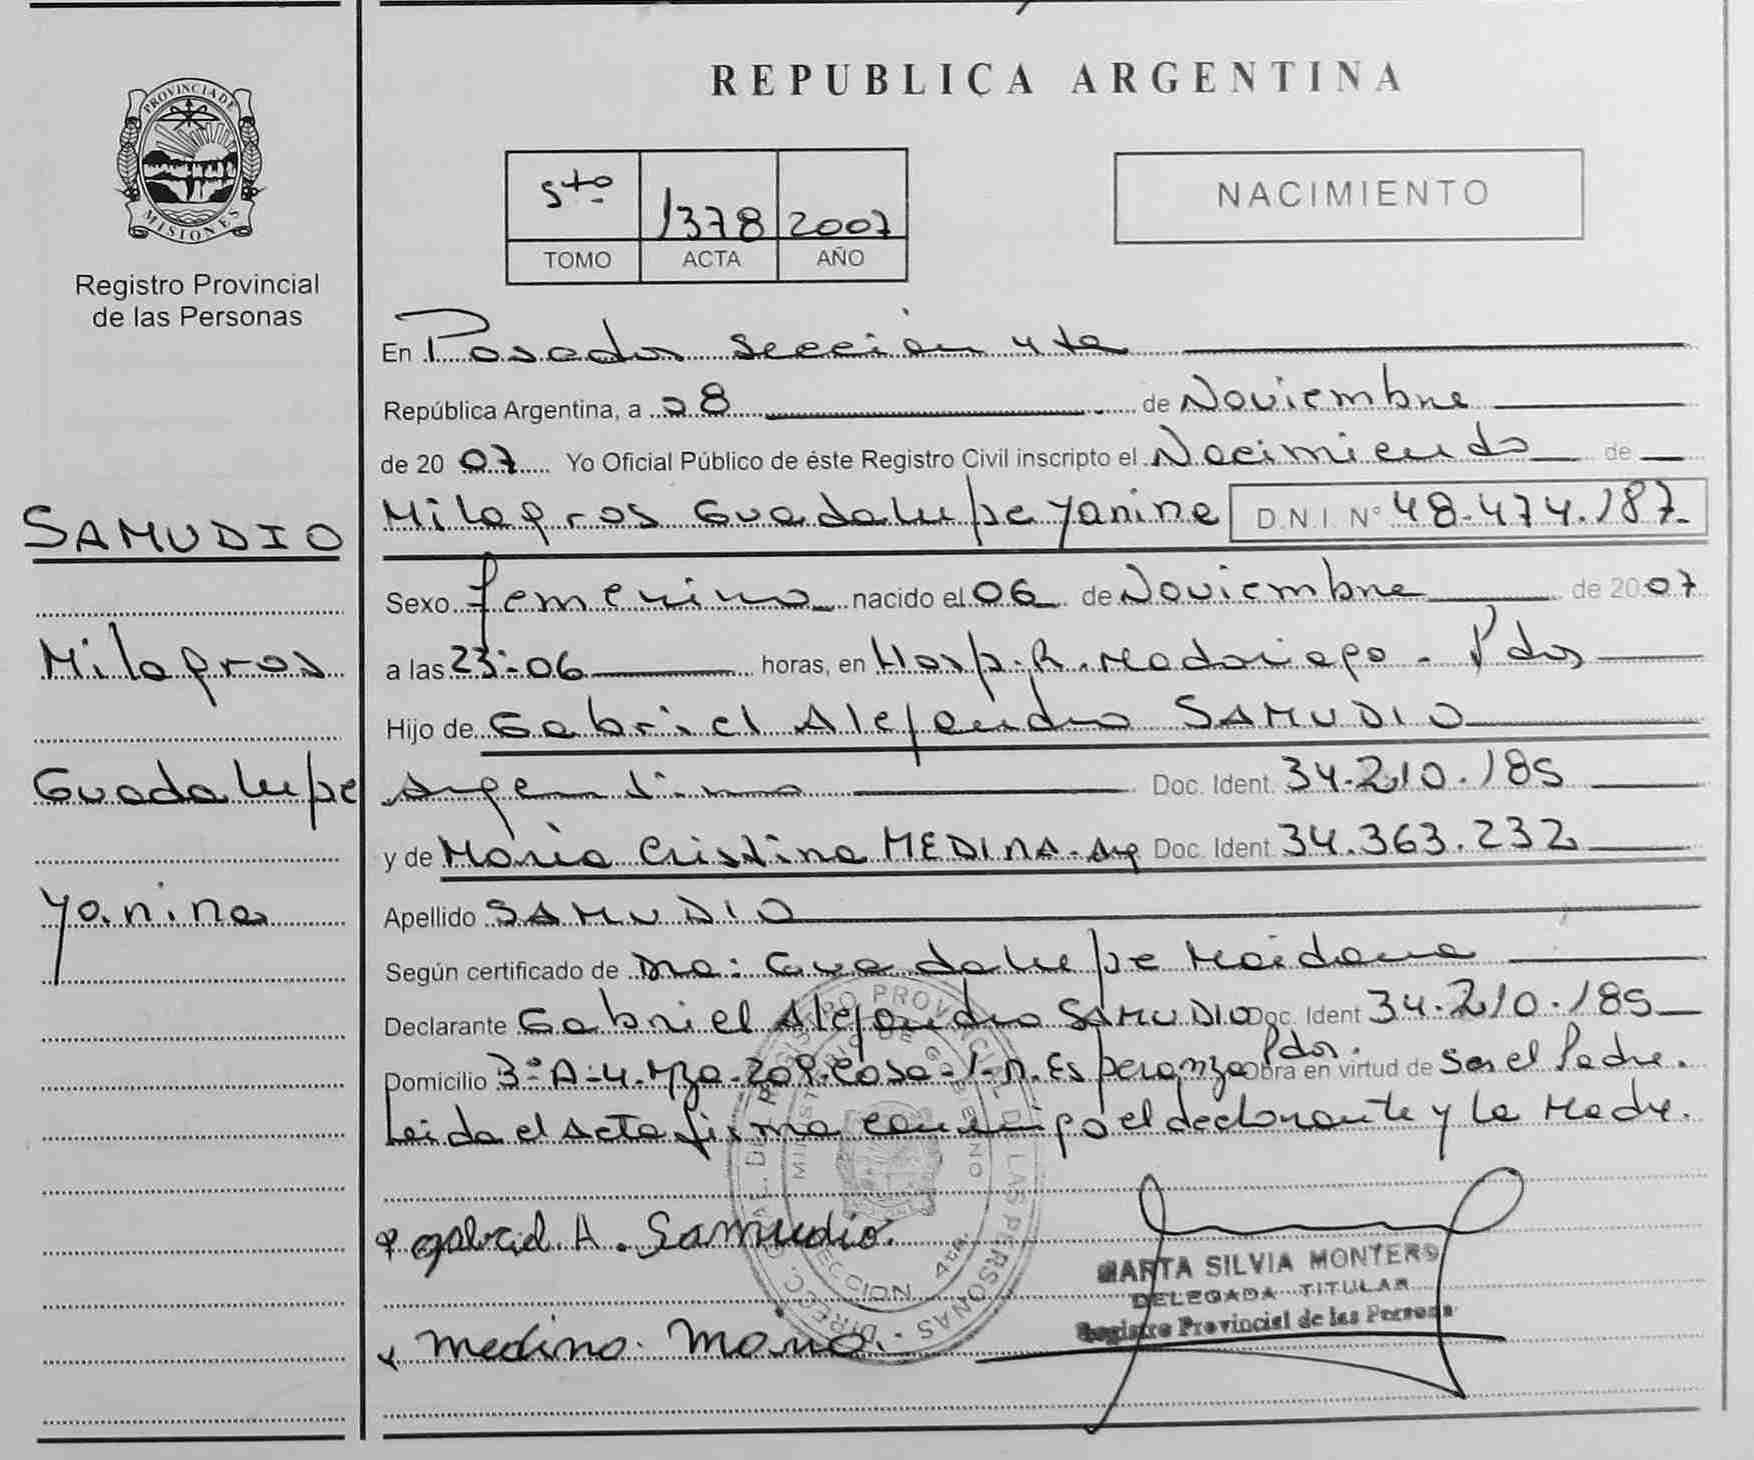 PROVINCIA DE
MISIONES
Registro Provincial
de las Personas
SAMUDIO
Milagros
Guadalupe
Yanina
REPUBLICA ARGENTINA
5to 1378 2007
TOMO ACTA AÑO
NACIMIENTO
En Posadas Sección 4ta
República Argentina, a 08 de Noviembre
de 2007 Yo Oficial Público de éste Registro Civil inscripto el Nacimiento de
Milagros Guadalupe Yanina D.N.I. Nº 48.474.187
Sexo femenino nacido el 06 de Noviembre de 2007
a las 23:06 horas, en Hosp. R. Madariaga - Pdas
Hijo de Gabriel Alejandro SAMUDIO
Argentino Doc. Ident. 34.210.185
y de María Cristina MEDINA - Arg Doc. Ident 34.363.232
Apellido SAMUDIO
Según certificado de Dra: Guadalupe Maidana
Declarante Gabriel Alejandro SAMUDIO Doc. Ident 34.210.185
Domicilio 3º A-4-Mza-209-Casa-1-N. Esperanza Pdas. Obra en virtud de Ser el Padre.
Leida el Acta firma conmigo el declarante y la Madre.
Gabriel A. Samudio.
Medina Maria.
MARTA SILVIA MONTERO
DELEGADA TITULAR
Registro Provincial de las Personas
DIRECC. GRAL. DEL REGISTRO PROVINCIAL DE LAS PERSONAS
MINISTERIO DE GOBIERNO
SECCION 4ta